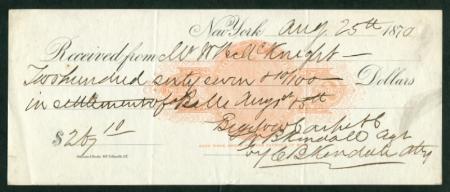 New York Aug. 25th 1870
Received from Mr Wm McKnight
Two hundred sixty seven & 10/100 Dollars
in settlement of Augst 15th
$ 267 10
Bigelow Carpet Co
Kendall Agt
by C B Kendall Atty